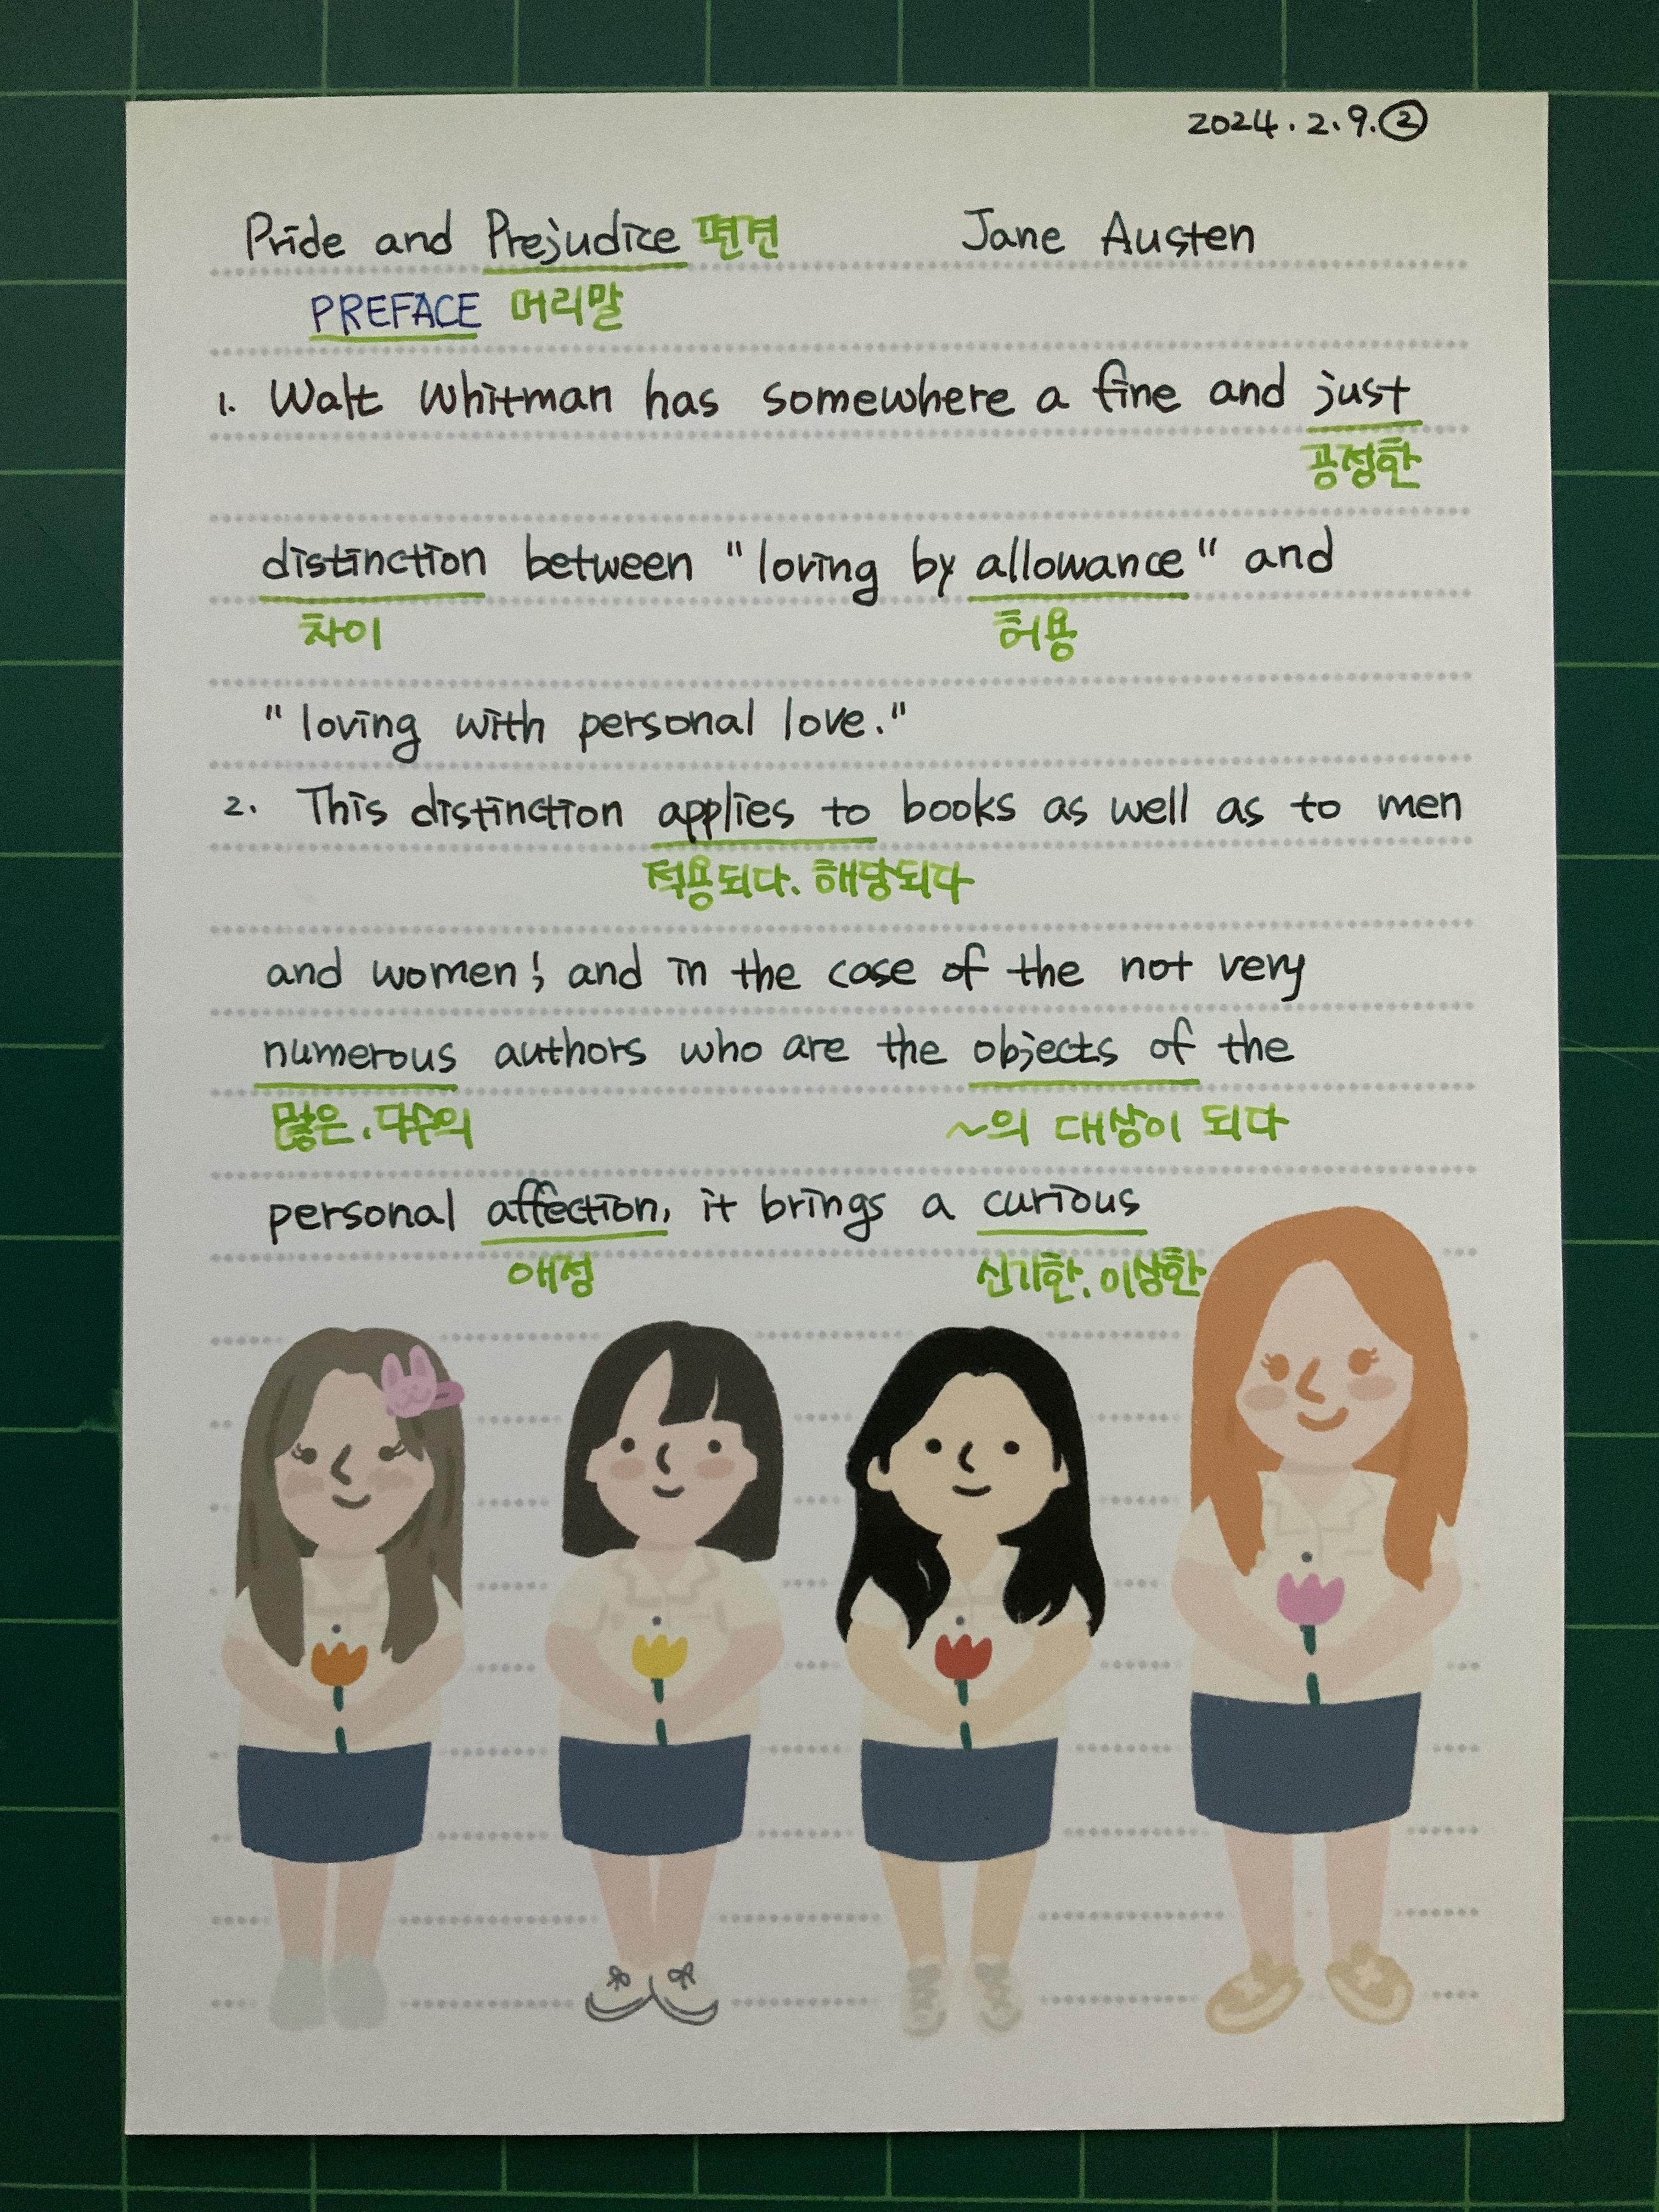 2024.2.9.②
Pride and Prejudice 편견 Jane Austen
PREFACE 머리말
1. Walt Whitman has somewhere a fine and just
공정한
distinction between "loving by allowance" and
차이 허용
"loving with personal love."
2. This distinction applies to books as well as to men
적용되다. 해당되다
and women; and in the case of the not very
numerous authors who are the objects of the
많은. 다수의 ~의 대상이 되다
personal affection, it brings a curious
애정 신기한. 이상한